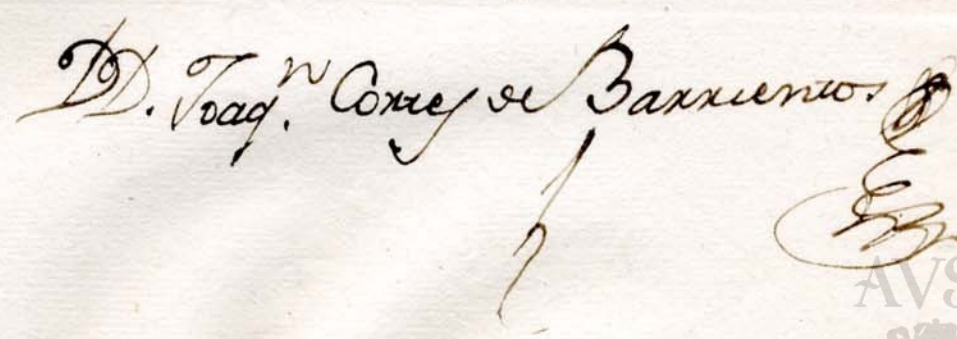 DD. Joaqn. Cortes de Barrientos
AVS